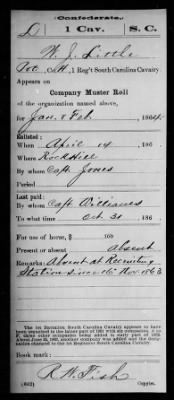 Confederate.
1 Cav. S.C.
W. J. Little
Pvt, Co. H, 1 Reg't South Carolina Cavalry
Appears on
Company Muster Roll
of the organization named above,
for Jan & Feb, 1864.
Enlisted:
When April 14, 186
Where Rock Hill
By whom Capt. Jones
Period
Last paid:
By whom Capt. Williams
To what time Oct 31, 186
For use of horse, $ 100
Present or absent absent
Remarks: Absent at Recruiting
Station since 15 Nov 1863
The 1st Battalion South Carolina Cavalry appears to have been
Book mark:
R. W. Fish
(642) Copyist.